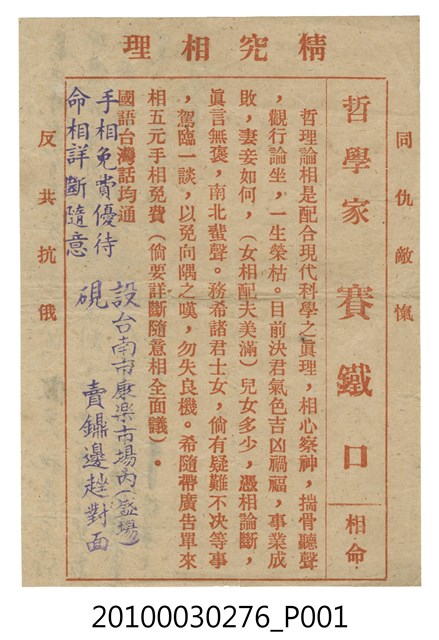 精究相理
同仇敵愾
哲學家 賽鐵口 相命
哲理論相是配合現代科學之眞理，相心察神，揣骨聽聲
，觀行論坐，一生榮枯。目前決君氣色吉凶禍福，事業成
敗，妻妾如何，（女相配夫美滿）兒女多少，憑相論斷，
眞言無褒，南北蜚聲。務希諸君士女，倘有疑難不决等事
，駕臨一談，以免向隅之嘆，勿失良機。希隨帶廣告單來
相五元手相免費（倘要詳斷隨意相全面議）。
國語台灣話均通
設台南市康樂市場內（盛場）
賣鼎邊趖對面
手相免賞優待
命相詳斷隨意
硯
反共抗俄
20100030276_P001